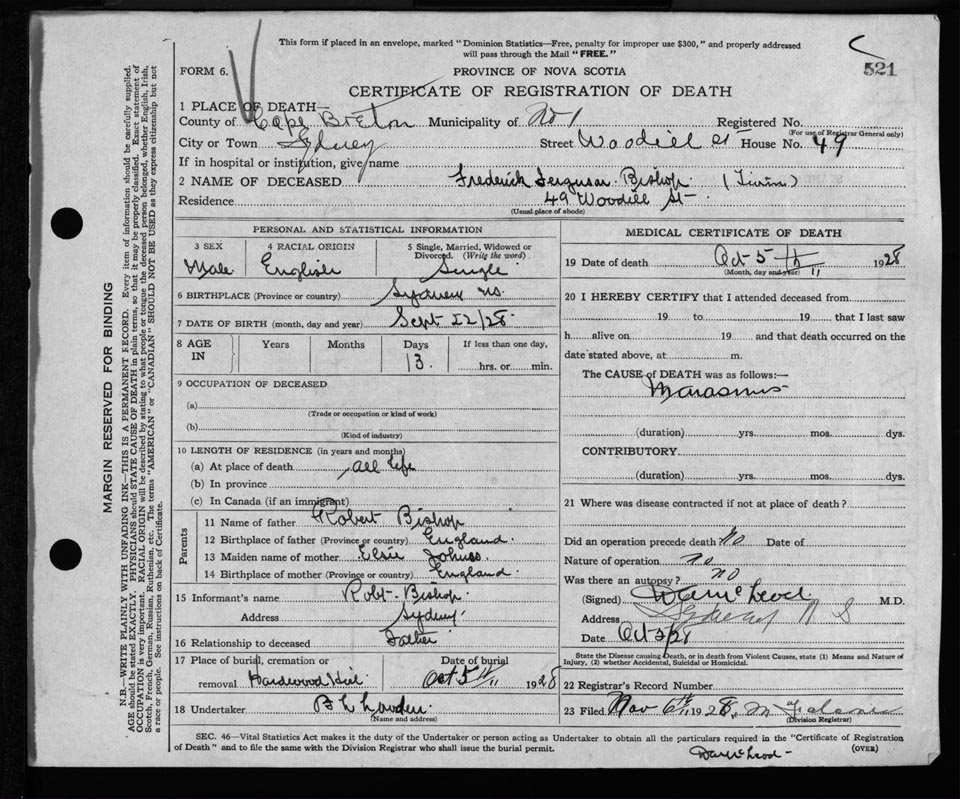 This form if placed in an envelope, marked " Dominion Statistics—Free, penalty for improper use $300," and properly addressed
will pass through the Mail "FREE."
521
FORM 6.
PROVINCE OF NOVA SCOTIA
CERTIFICATE OF REGISTRATION OF DEATH
1 PLACE OF DEATH—
County of Cape Breton Municipality of No 1 Registered No.
(For use of Registrar General only)
City or Town Sydney Street Woodill St House No. 49
If in hospital or institution, give name
2 NAME OF DECEASED Frederick Ferguson Bishop
Residence 49 Woodill St
(Usual place of abode)
PERSONAL AND STATISTICAL INFORMATION
3 SEX 4 RACIAL ORIGIN 5 Single, Married, Widowed or Divorced. (Write the word.)
Male English Single
6 BIRTHPLACE (Province or country) Sydney NS.
7 DATE OF BIRTH (month, day and year) Sept 22/28.
8 AGE IN Years Months Days If less than one day,
13. hrs. or min.
9 OCCUPATION OF DECEASED
(a)
(Trade or occupation or kind of work)
(b)
(Kind of industry)
10 LENGTH OF RESIDENCE (in years and months)
(a) At place of death all life
(b) In province
(c) In Canada (if an immigrant)
Parents
11 Name of father Robert Bishop
12 Birthplace of father (Province or country) England.
13 Maiden name of mother Elsie
14 Birthplace of mother (Province or country) England.
15 Informant's name Robt. Bishop
Address Sydney
16 Relationship to deceased Father
17 Place of burial, cremation or Date of burial
removal Hardwood Hill Oct 5 1928
18 Undertaker
(Name and address)
MEDICAL CERTIFICATE OF DEATH
19 Date of death Oct 5th 1928
(Month, day and year)
20 I HEREBY CERTIFY that I attended deceased from
19 to 19 that I last saw
h alive on 19 and that death occurred on the
date stated above, at m.
The CAUSE of DEATH was as follows:—
Marasmus
(duration) yrs. mos. dys.
CONTRIBUTORY.
(duration) yrs. mos. dys.
21 Where was disease contracted if not at place of death?
Did an operation precede death? No Date of
Nature of operation no
Was there an autopsy? no
(Signed) McLeod M.D.
Address Sydney N S
Date Oct /28
State the Disease causing Death, or in death from Violent Causes, state (1) Means and Nature of
Injury, (2) whether Accidental, Suicidal or Homicidal.
22 Registrar's Record Number
23 Filed Nov 6th 1928,
(Division Registrar)
SEC. 46—Vital Statistics Act makes it the duty of the Undertaker or person acting as Undertaker to obtain all the particulars required in the "Certificate of Registration
of Death" and to file the same with the Division Registrar who shall issue the burial permit.
(OVER)
McLeod
MARGIN RESERVED FOR BINDING
N.B.—WRITE PLAINLY WITH UNFADING INK—THIS IS A PERMANENT RECORD. Every item of information should be carefully supplied.
AGE should be stated EXACTLY. PHYSICIANS should STATE CAUSE OF DEATH in plain terms, so that it may be properly classified. Exact statement of
OCCUPATION is very important. RACIAL ORIGIN will be described by stating to what people or tongue the deceased person belonged, whether English, Irish,
Scotch, French, German, Russian, Ruthenian, etc. The terms "AMERICAN" or "CANADIAN" SHOULD NOT BE USED as they express citizenship but not
a race or people. See instructions on back of Certificate.